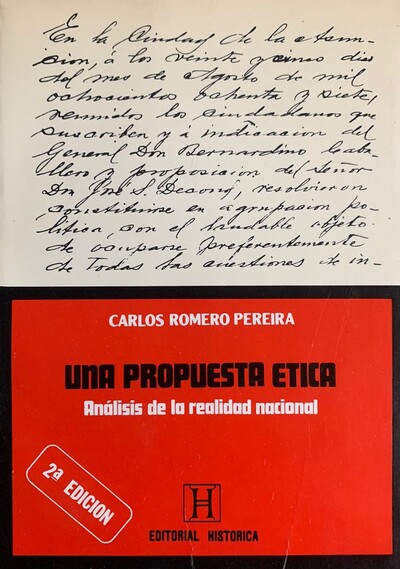 En la Ciudad de la Asun-
cion, á los veinte y cinco dias
del mes de Agosto de mil
ochocientos ochenta y siete,
reunidos los ciudadanos que
suscriben y á indicacion del
General Don Bernardino Caba-
llero y proposicion del Señor
Don José S. Decoud, resolvieron
constituirse en agrupacion po-
lítica, con el laudable objeto
de ocuparse preferentemente
de todas las cuestiones de in-
CARLOS ROMERO PEREIRA
UNA PROPUESTA ETICA
Análisis de la realidad nacional
2ª EDICION
H
EDITORIAL HISTORICA